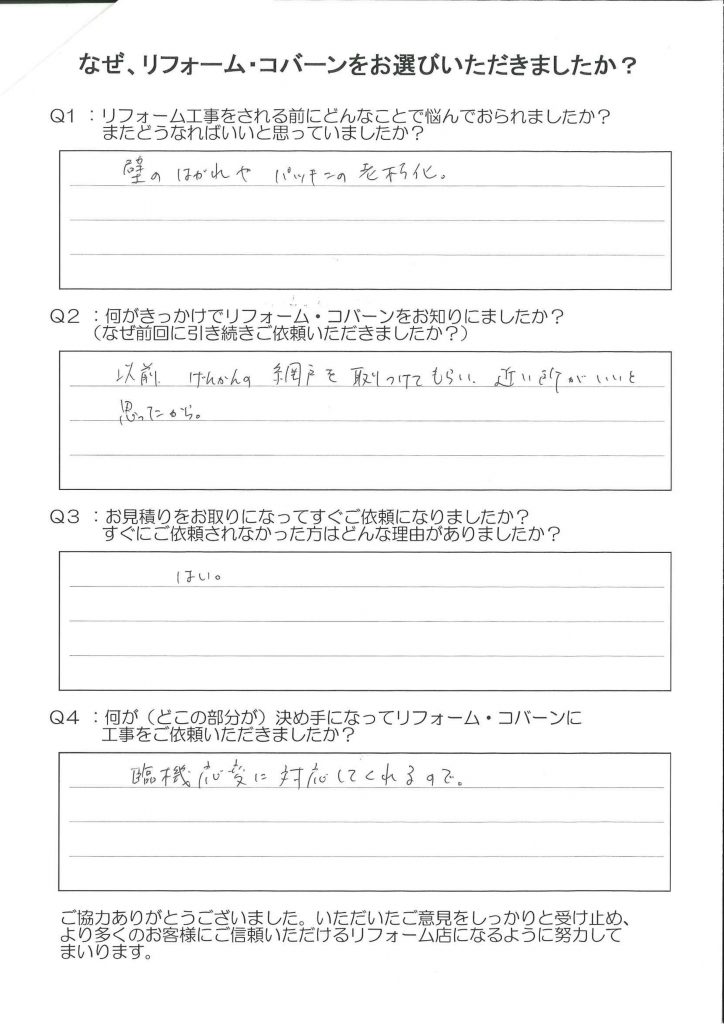 なぜ、リフォーム・コバーンをお選びいただきましたか？
Q1 ：リフォーム工事をされる前にどんなことで悩んでおられましたか？
またどうなればいいと思っていましたか？
壁の はがれや パッキンの 老朽化。
Q2 ：何がきっかけでリフォーム・コバーンをお知りにましたか？
（なぜ前回に引き続きご依頼いただきましたか？）
以前、げんかんの 網戸を 取りつけてもらい、近い所がいいと
思ったから。
Q3 ：お見積りをお取りになってすぐご依頼になりましたか？
すぐにご依頼されなかった方はどんな理由がありましたか？
はい。
Q4 ：何が（どこの部分が）決め手になってリフォーム・コバーンに
工事をご依頼いただきましたか？
臨機応変に 対応してくれるので。
ご協力ありがとうございました。いただいたご意見をしっかりと受け止め、
より多くのお客様にご信頼いただけるリフォーム店になるように努力して
まいります。